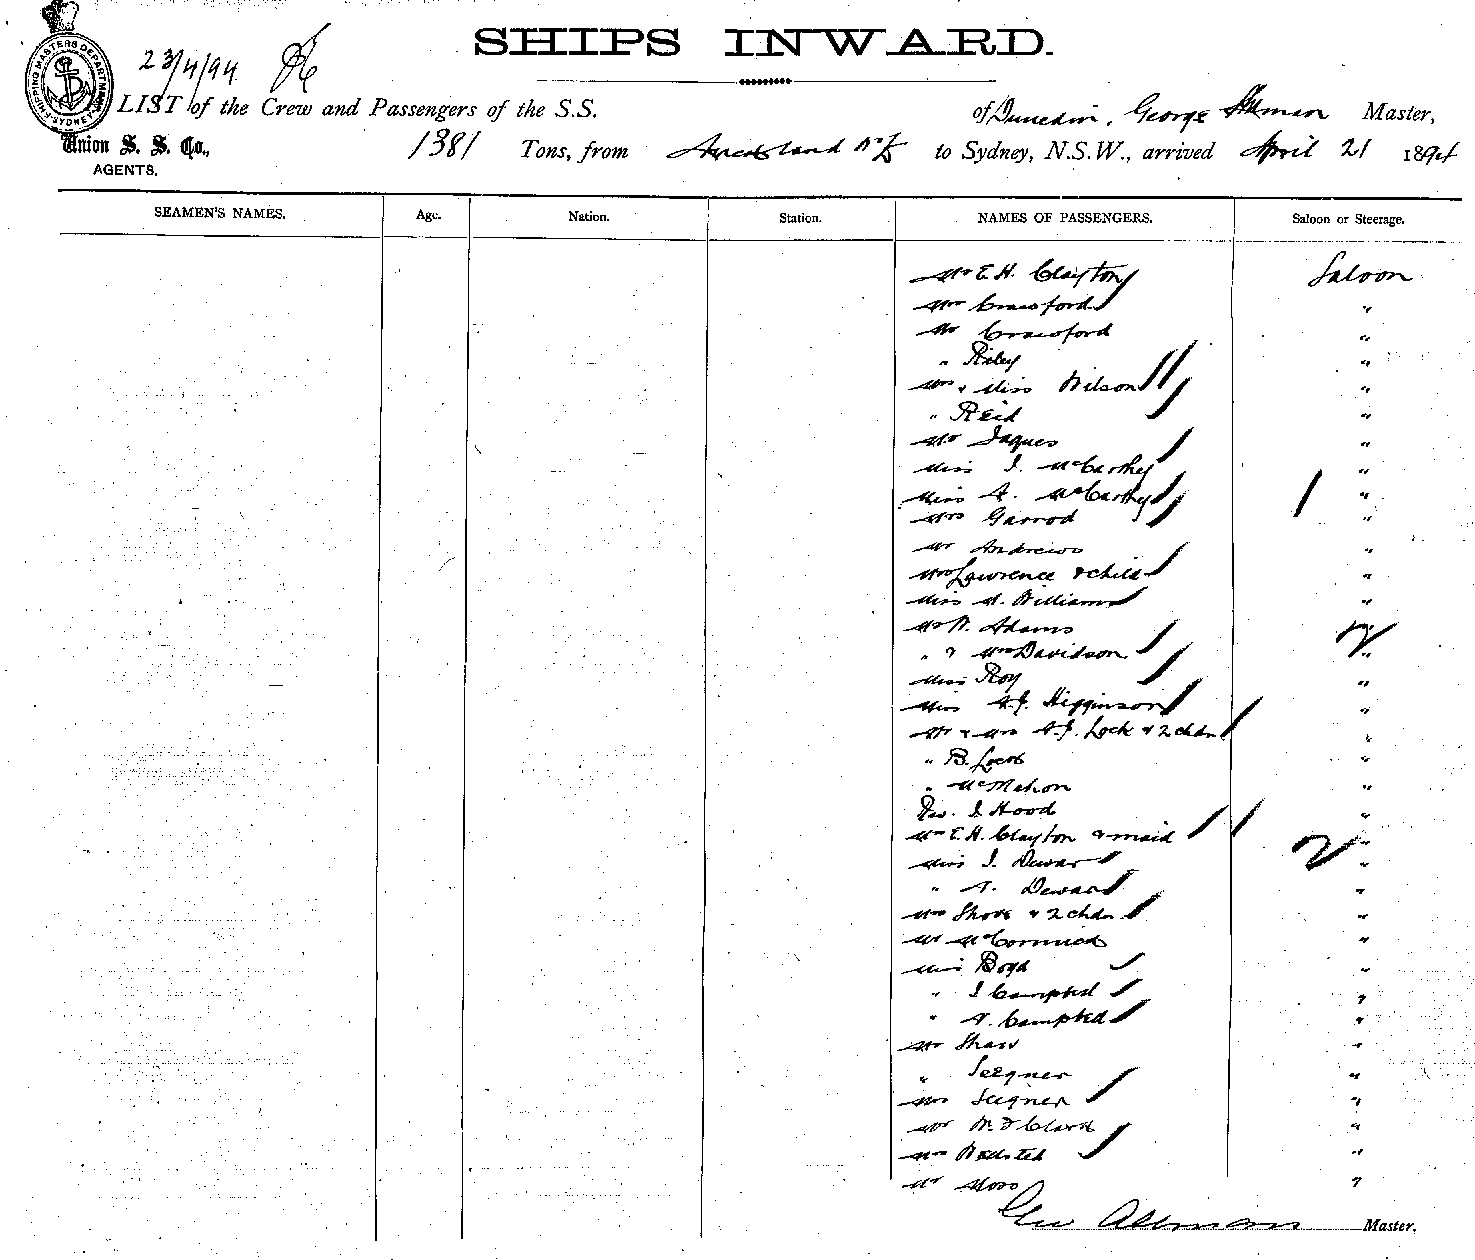 SHIPS INWARD.
23/4/94
SHIPPING MASTERS DEPARTMENT SYDNEY
LIST of the Crew and Passengers of the S.S. of Dunedin, George Allman Master,
Union S. S. Co., 1381 Tons, from Auckland NZ to Sydney, N.S.W., arrived April 21 1894
AGENTS.
SEAMEN'S NAMES. Age. Nation. Station. NAMES OF PASSENGERS. Saloon or Steerage.
Mr E. H. Clayton Saloon
Mrs Crawford "
Mr Crawford "
" Riley "
Mrs & Miss Wilson "
" Reid "
Mr Jaques "
Miss J. McCarthy "
Miss A. McCarthy "
Mrs Garrod "
Mr Andrews "
Mrs Lawrence & child "
Miss Williams "
Mr W. Adams "
" & Mrs Davidson "
Miss Roy "
Miss Higginson "
Mr & Mrs Lock & 2 chdn "
" B. Lock "
" McMahon "
Rev. J Hood "
Mrs E. H. Clayton & maid "
Miss J. Dewar "
" Dewar "
Mrs Shove & 2 chdn "
Mr McCormick "
Miss Boyd "
" J Campbell "
" A. Campbell "
Mr Shaw "
" Seegner "
Mrs Seegner "
Mr Clark "
Mrs "
Mr Moss "
Geo Allman Master.